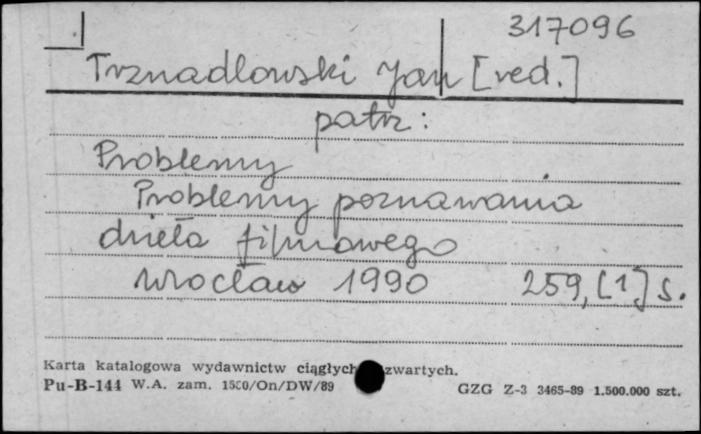 317096
Trznadlowski Jan [red.]
patrz:
Problemy
Problemy poznawania
dzieła filmowego
Wrocław 1990 259, [1] s.
Karta katalogowa wydawnictw ciągłych zwartych.
Pu-B-144 W.A. zam. 1500/On/DW/89 GZG Z-3 3465-89 1.500.000 szt.